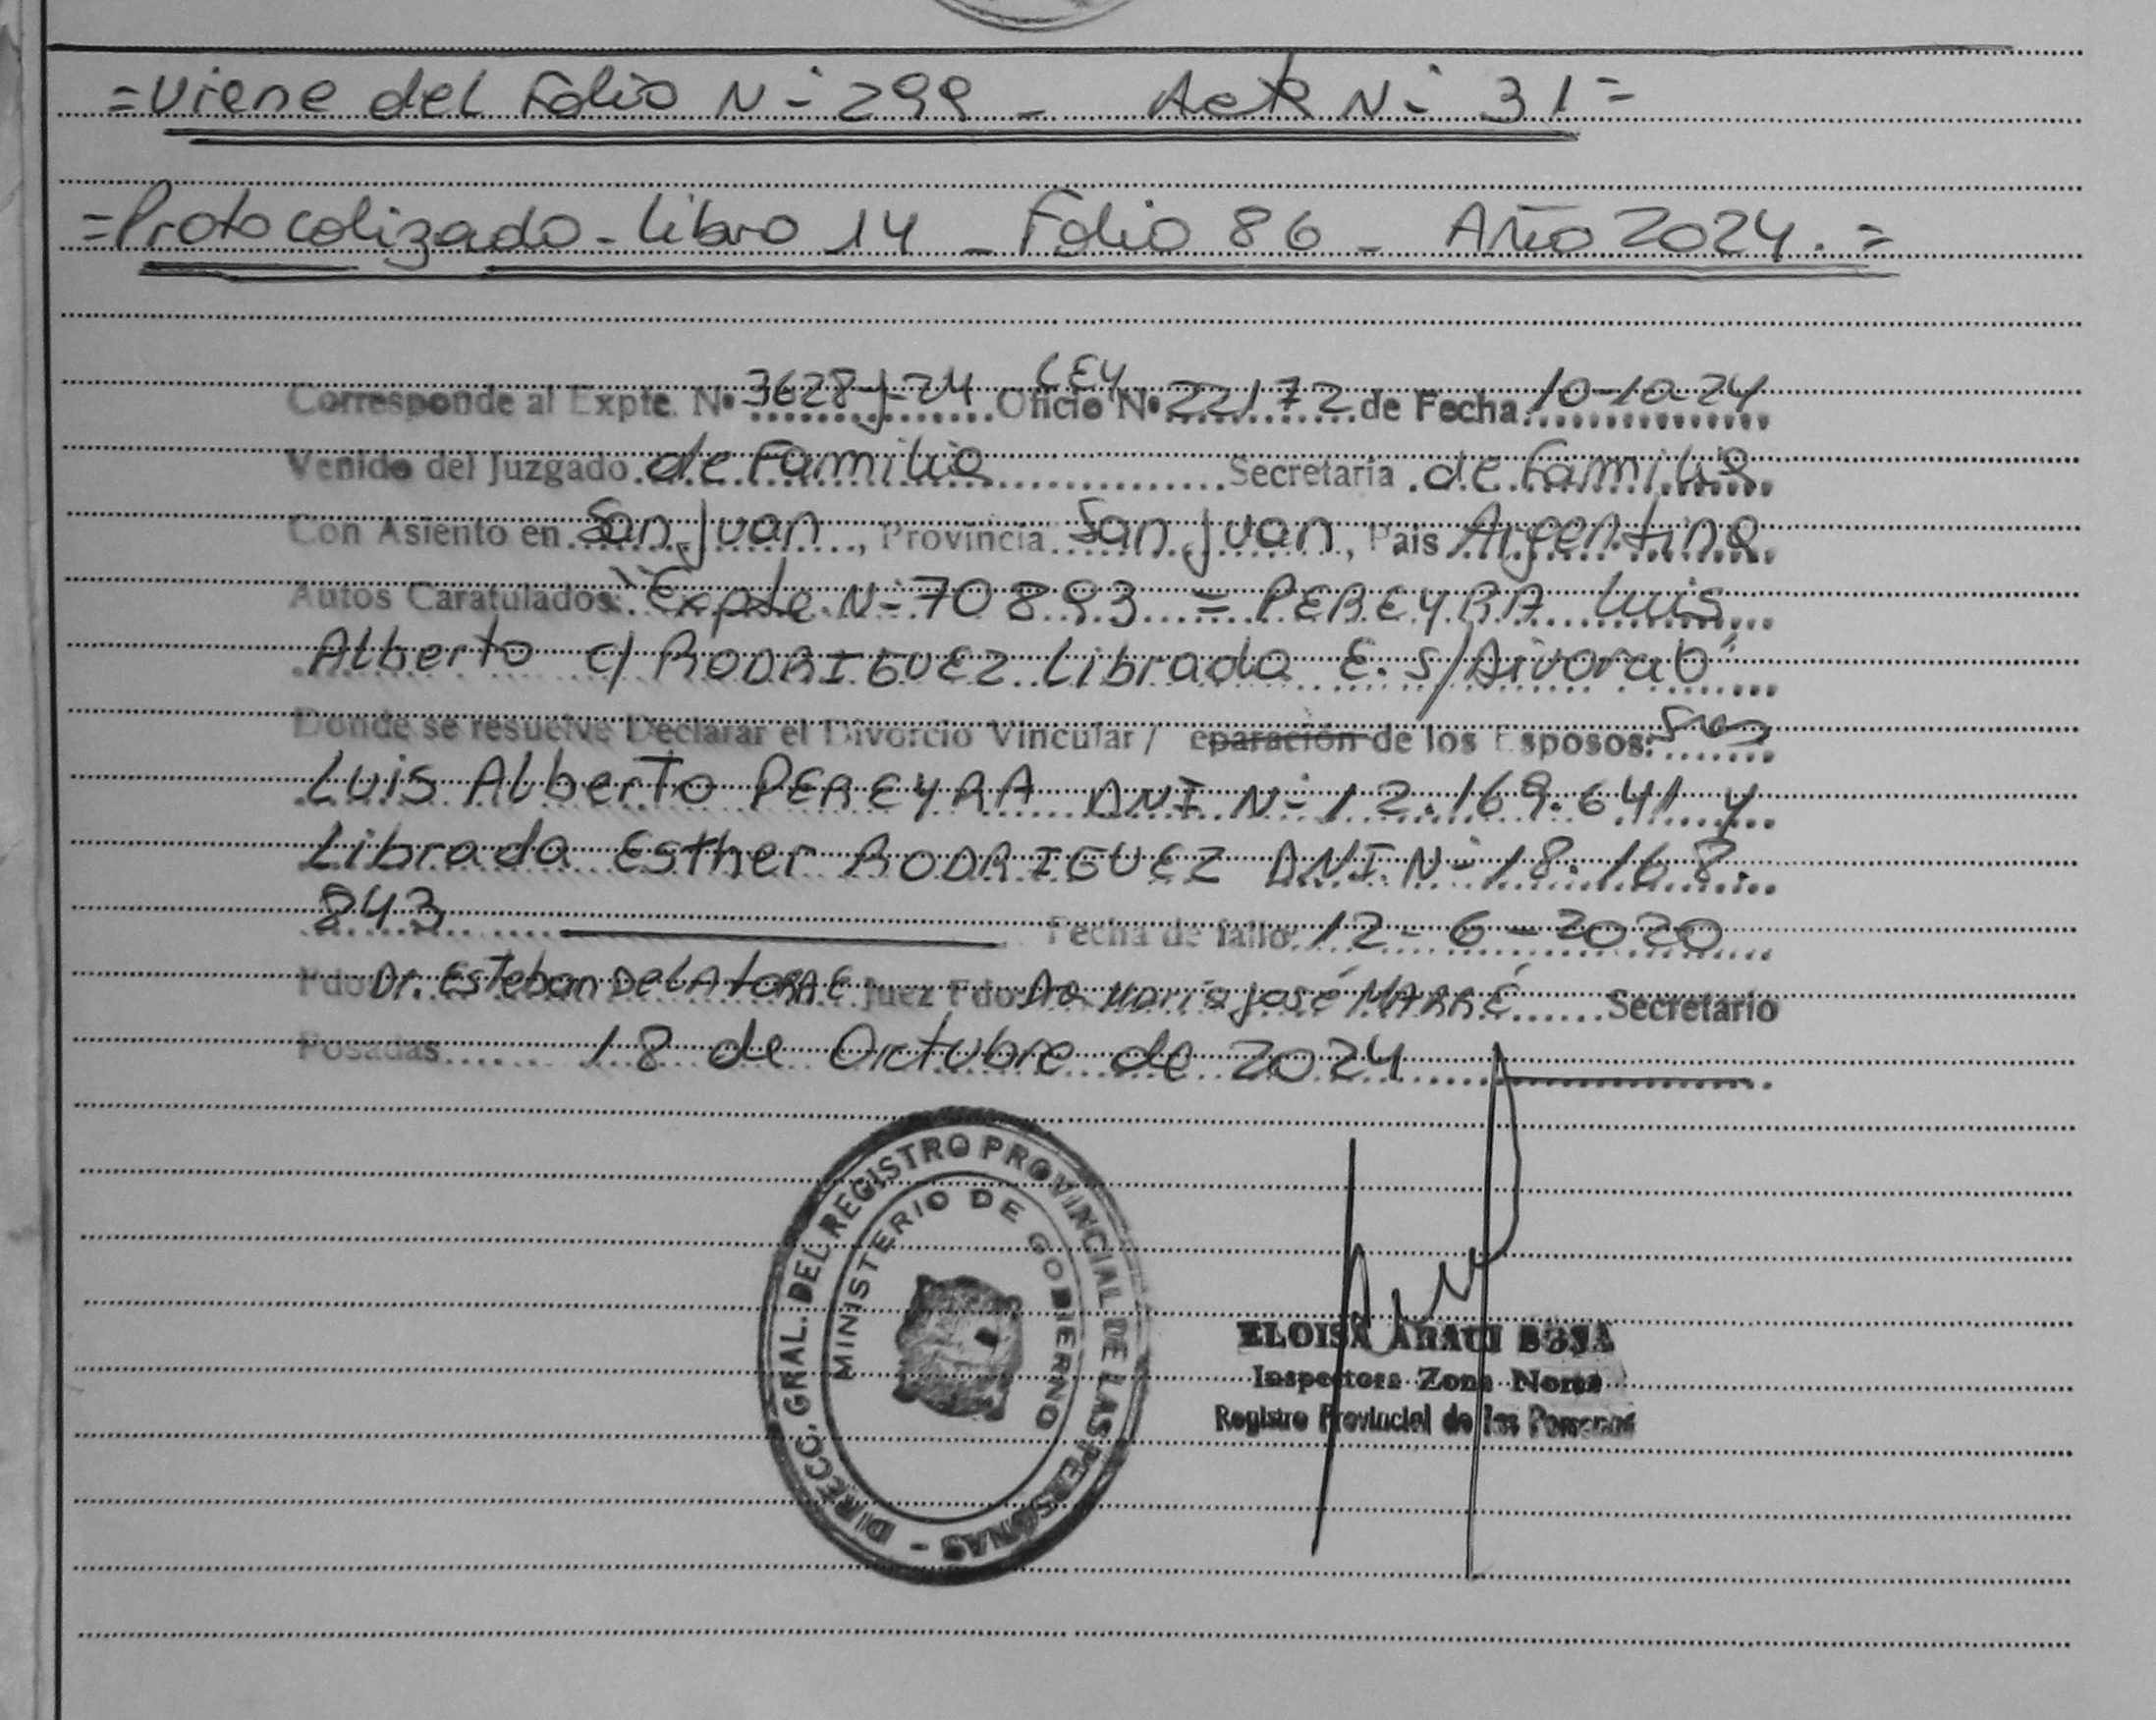 =Viene del Folio Nº 299 - Acta Nº 31=
=Protocolizado - Libro 14 - Folio 86 - Año 2024.=
LEY
Corresponde al Expte. Nº 3628-J-24 Oficio Nº 22172 de Fecha 10-10-24
Venido del Juzgado de Familia Secretaria de Familia
Con Asiento en San Juan, Provincia San Juan, Pais Argentina
Autos Caratulados: "Expte Nº 70893 = PEREYRA Luis
Alberto c/ RODRIGUEZ Librada E. s/ Divorcio"
Donde se resuelve Declarar el Divorcio Vincular / eparación de los Esposos:
Luis Alberto PEREYRA DNI Nº 12.169.641 y
Librada Esther RODRIGUEZ DNI Nº 18.168.
843 Fecha de fallo: 12-6-2020
Fdo Dr. Esteban DE LA TORRE Juez Fdo Dra María José MARRÉ Secretario
Posadas 18 de Octubre de 2024
DIRECC. GRAL. DEL REGISTRO PROVINCIAL DE LAS PERSONAS -
MINISTERIO DE GOBIERNO
ELOISA
Inspectora Zona Norte
Registro Provincial de las Personas